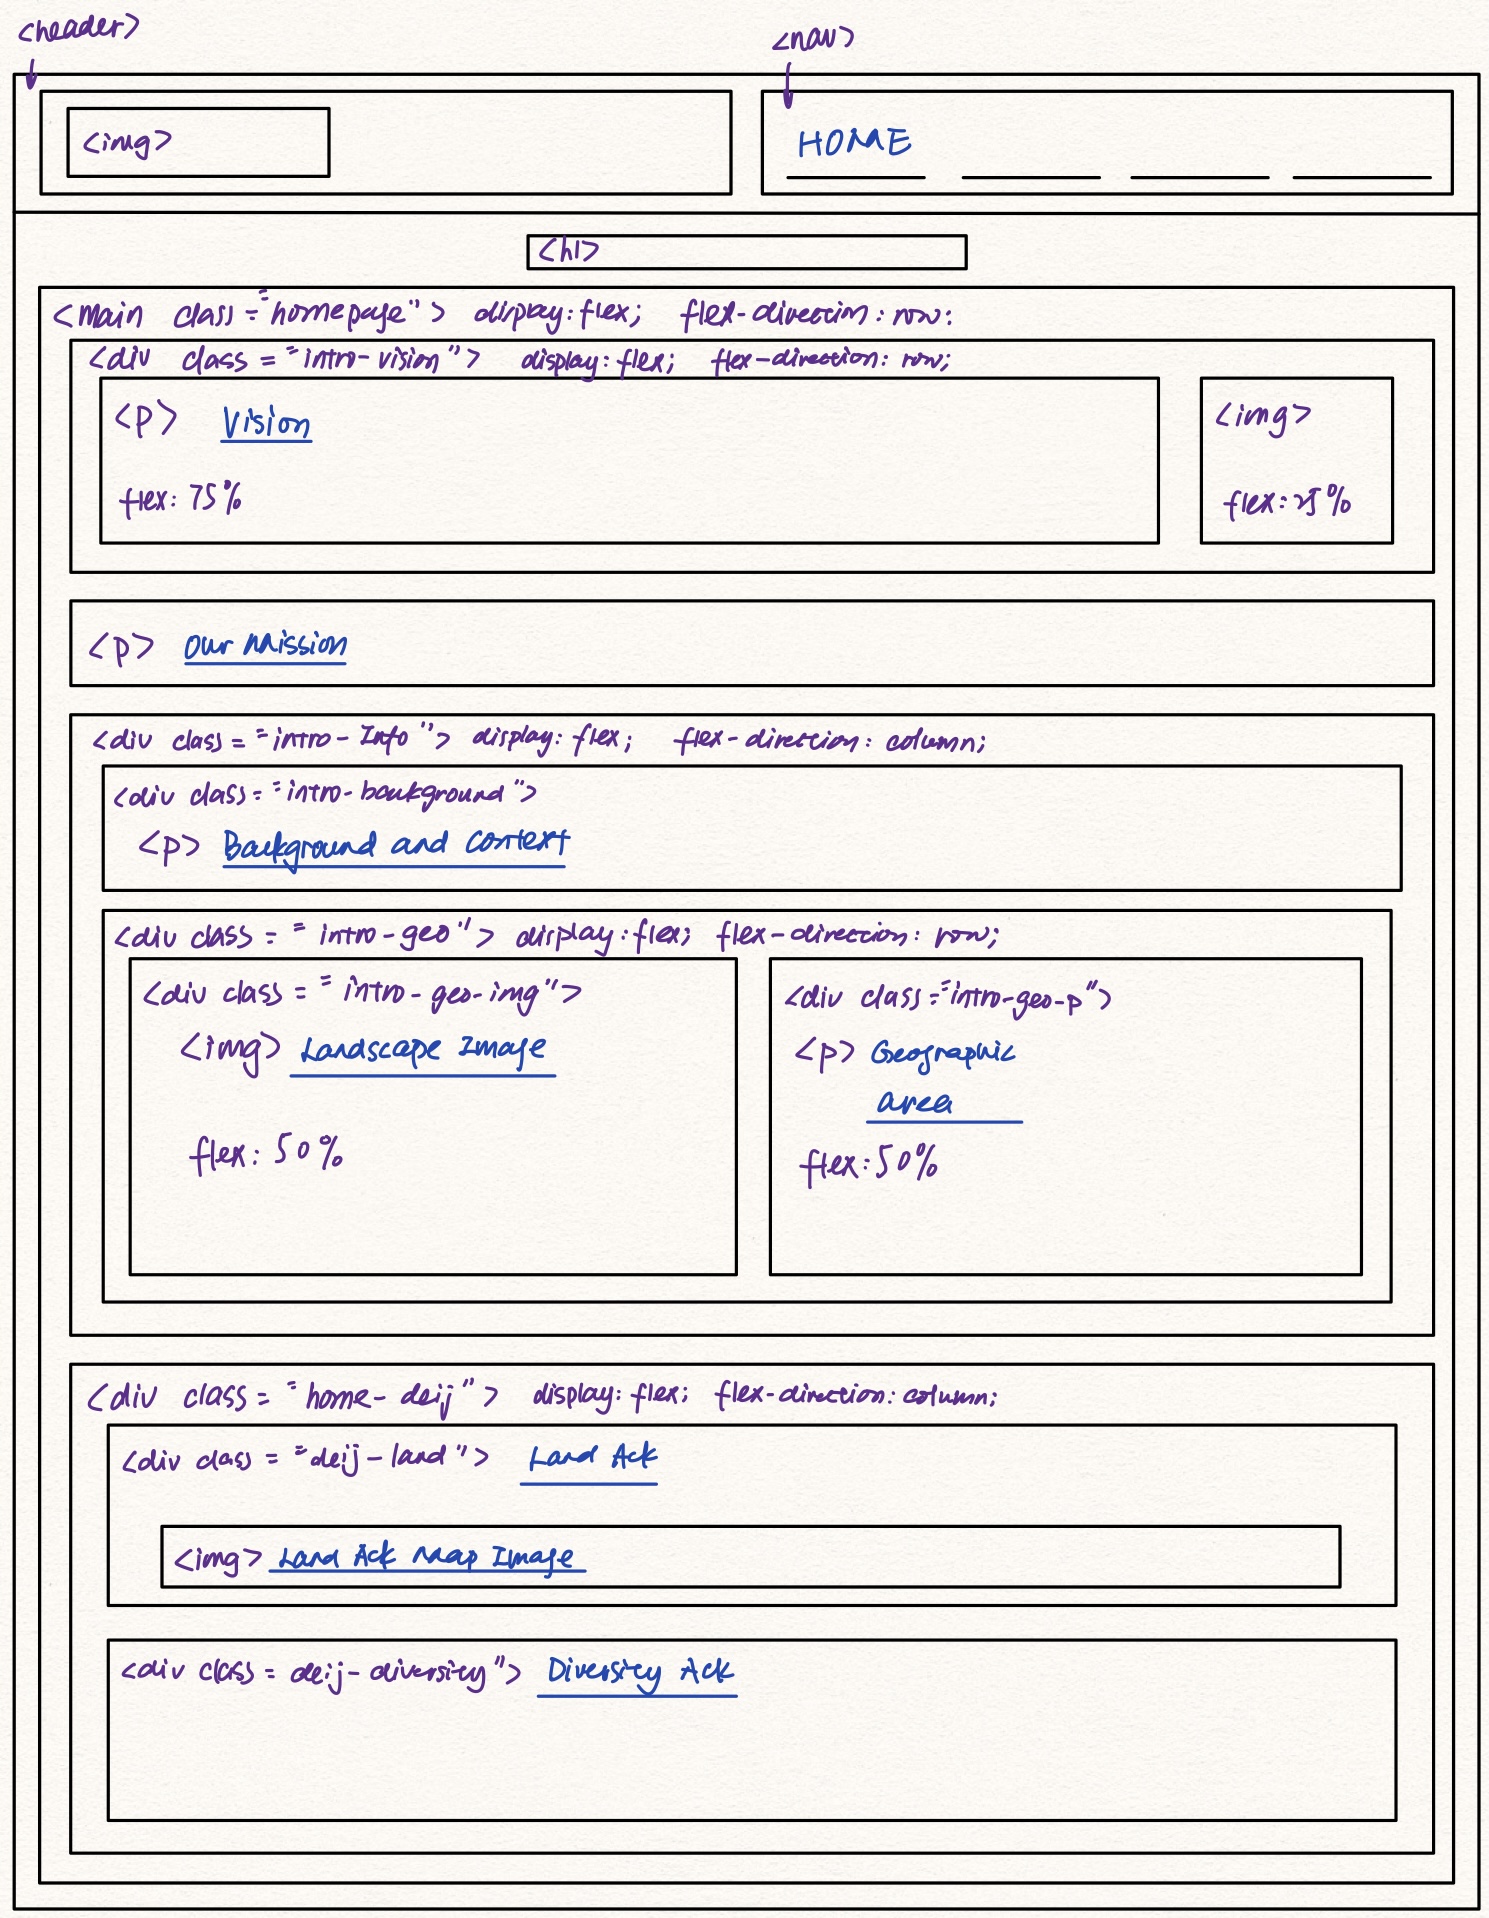 <header>
<nav>
<img>
HOME
<h1>
<main class="homepage"> display: flex; flex-direction: row;
<div class="intro-vision"> display: flex; flex-direction: row;
<p> Vision
flex: 75%
<img>
flex: 25%
<p> Our Mission
<div class="intro-Info"> display: flex; flex-direction: column;
<div class="intro-background">
<p> Background and Context
<div class="intro-geo"> display: flex; flex-direction: row;
<div class="intro-geo-img">
<img> Landscape Image
flex: 50%
<div class="intro-geo-p">
<p> Geographic
area
flex: 50%
<div class="home-deij"> display: flex; flex-direction: column;
<div class="deij-land"> Land Ack
<img> Land Ack Map Image
<div class=deij-diversity"> Diversity Ack